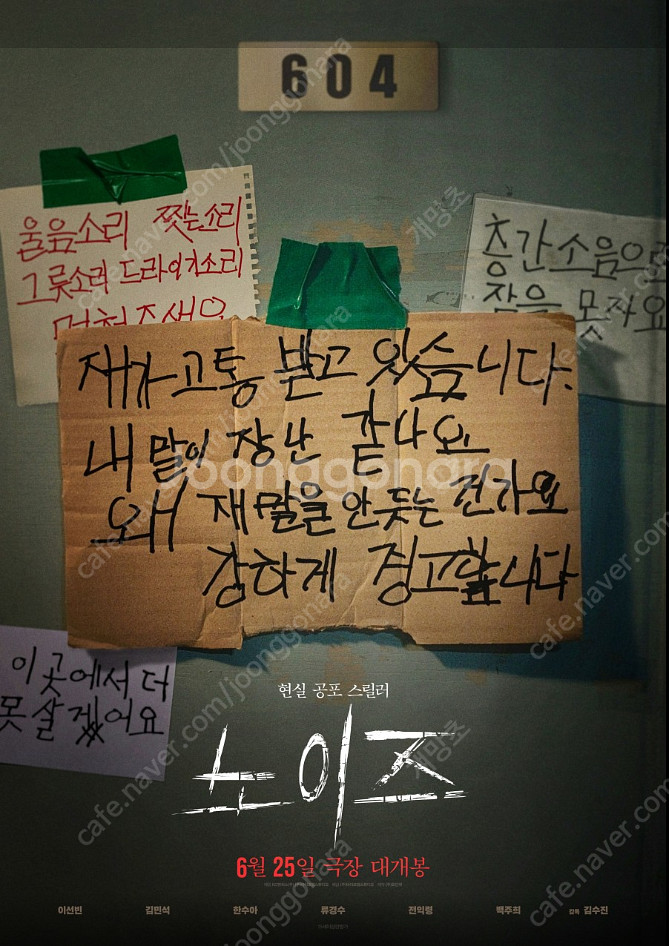 604
울음소리 찢는소리
그릇소리 드라이기소리
멈춰주세요
층간소음으로
잠을 못자요
재가 고통 받고 있습니다.
내 말이 장난 같나요
왜 재 말을 안 듯는 건가요
강하게 경고합니다
이곳에서 더
못살겠어요
현실 공포 스릴러
노이즈
6월 25일 극장 대개봉
이선빈 김민석 한수아 류경수 전익령 백주희 감독 김수진
joonggonara
cafe.naver.com/joonggonara
개망초